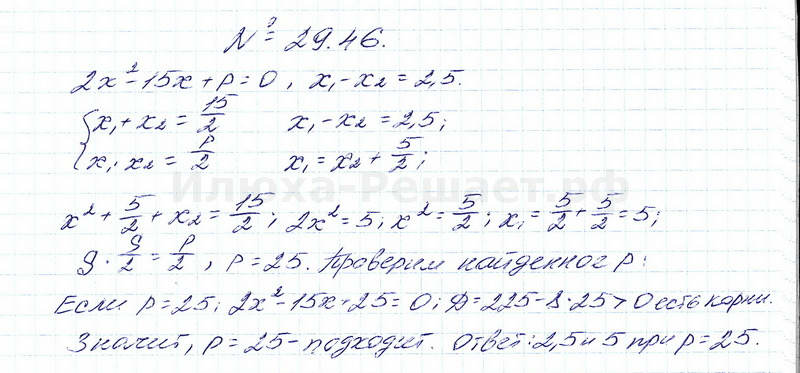 № 29.46.
2x² - 15x + p = 0, x₁ - x₂ = 2,5.
{ x₁ + x₂ = 15/2 x₁ - x₂ = 2,5;
x₁ · x₂ = p/2 x₁ = x₂ + 5/2;
Илюха-Решает.рф
x² + 5/2 + x₂ = 15/2; 2x² = 5; x² = 5/2; x₁ = 5/2 + 5/2 = 5;
5 · 5/2 = p/2, p = 25. Проверим найденног p:
Если p = 25; 2x² - 15x + 25 = 0; Д = 225 - 8·25 > 0 есть корни.
Значит, p = 25 - подходит. Ответ: 2,5 и 5 при p = 25.